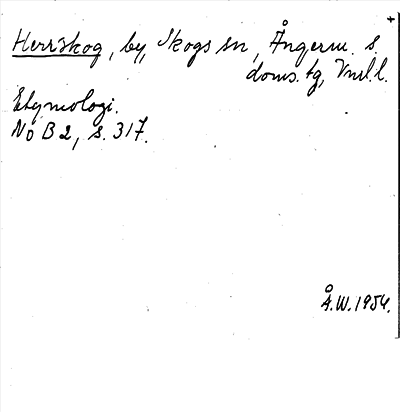 Herrskog, by, Skogs sn, Ångerm. s.
doms. tg, Vnrl. l.
Etymologi.
No B 2, s. 317.
Å.W. 1954.